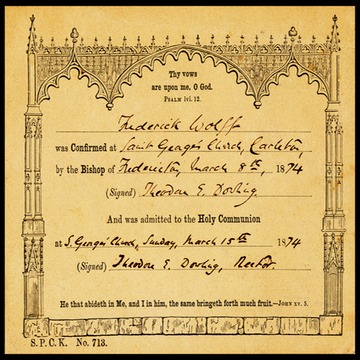 Thy vows
are upon me, O God.
Psalm lvi. 12.
Frederick Wolff
was Confirmed at Saint George's Church, Carleton,
by the Bishop of Fredericton, March 8th, 1874
(Signed) Theodore E. Dowling.
And was admitted to the Holy Communion
at S. George's Church, Sunday, March 15th 1874
(Signed) Theodore E. Dowling, Rector.
He that abideth in Me, and I in him, the same bringeth forth much fruit.—John xv. 5.
S. P. C. K. No. 713.